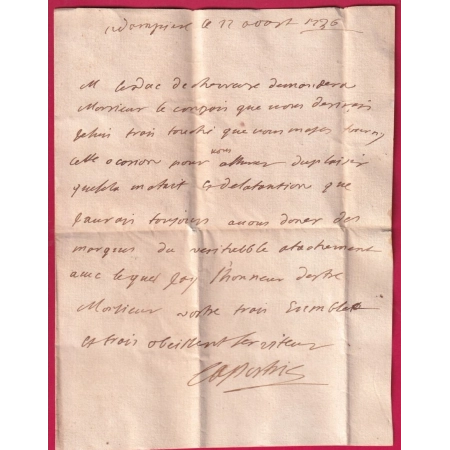 adampiere le 22 aoust 1736
M leduc de chevreuse demandera
Monsieur le congois que vous desirais
jesuis trais touché que vous mayes
cette ocasion pour vous assurer du plaisir
quelle matait Et delatantion que
jauray toujours avous doner des
marques du veritebble atachement
avec lequel jay l'honneur destre
Monsieur vostre trais humble
et trais obeissent serviteur